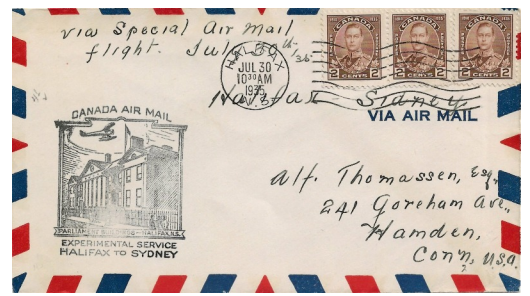 via Special Air Mail
flight. July 30th 35
HALIFAX
JUL 30
10 30 AM
1935
N.S.
Halifax Sidney
CANADA
2 CENTS 2
CANADA
2 CENTS 2
CANADA
2 CENTS 2
VIA AIR MAIL
CANADA AIR MAIL
PARLIAMENT BUILDINGS - HALIFAX, N.S.
EXPERIMENTAL SERVICE
HALIFAX TO SYDNEY
Alf. Thomassen, Esq.
241 Goreham Ave.,
Hamden,
Conn, U.S.A.